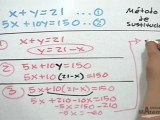 x+y=21
5x+10y=150...②
Método
de
sustitució
① x+y=21
y=21-x
② 5x+10y=150
5x+10(21-x)=150
③ 5x+10(21-x)=150
5x+210-10x=150